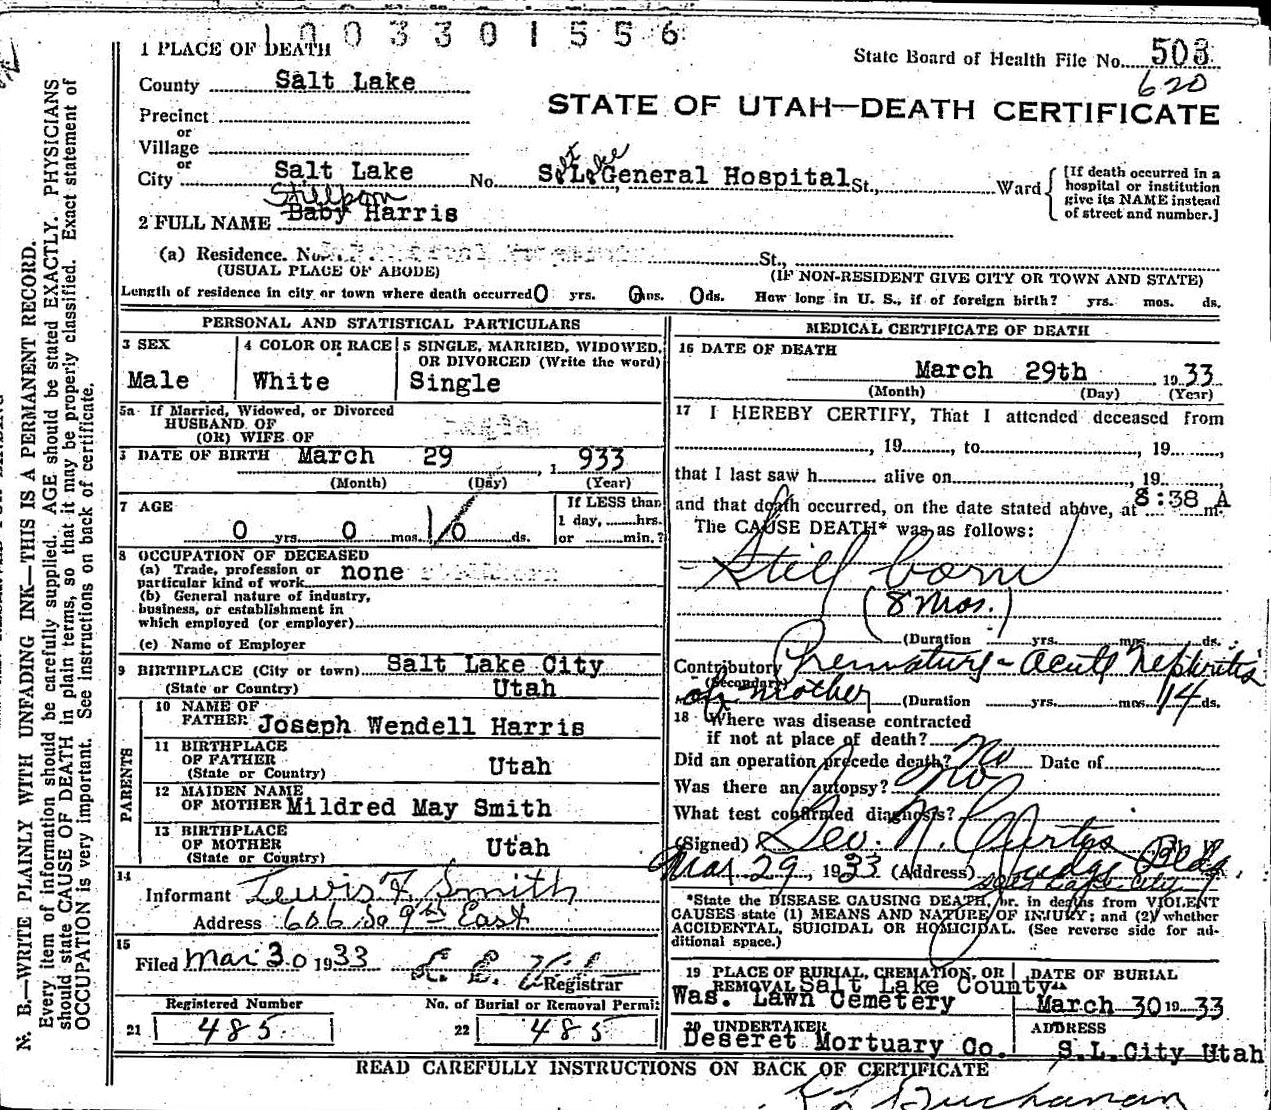 1003301556
1 PLACE OF DEATH
State Board of Health File No. 503
620
County Salt Lake
STATE OF UTAH—DEATH CERTIFICATE
Precinct
or
Village
or
City Salt Lake No. S. L. General Hospital St., Ward
[If death occurred in a hospital or institution give its NAME instead of street and number.]
Stillborn
2 FULL NAME Baby Harris
(a) Residence. No. St.,
(USUAL PLACE OF ABODE) (IF NON-RESIDENT GIVE CITY OR TOWN AND STATE)
Length of residence in city or town where death occurred 0 yrs. 0 ms. 0 ds. How long in U. S., if of foreign birth? yrs. mos. ds.
PERSONAL AND STATISTICAL PARTICULARS
3 SEX
Male
4 COLOR OR RACE
White
5 SINGLE, MARRIED, WIDOWED,
OR DIVORCED (Write the word)
Single
5a If Married, Widowed, or Divorced
HUSBAND OF
(OR) WIFE OF
DATE OF BIRTH March 29, 1933
(Month) (Day) (Year)
7 AGE
0 yrs. 0 mos. 0 ds.
If LESS than
1 day, hrs.
or min.?
8 OCCUPATION OF DECEASED
(a) Trade, profession or
particular kind of work none
(b) General nature of industry,
business, or establishment in
which employed (or employer)
(c) Name of Employer
9 BIRTHPLACE (City or town) Salt Lake City
(State or Country) Utah
PARENTS
10 NAME OF
FATHER Joseph Wendell Harris
11 BIRTHPLACE
OF FATHER
(State or Country) Utah
12 MAIDEN NAME
OF MOTHER Mildred May Smith
13 BIRTHPLACE
OF MOTHER
(State or Country) Utah
14
Informant Lewis F. Smith
Address 606 So 9th East
15
Filed Mar 30 1933
Registrar
Registered Number
21 485
No. of Burial or Removal Permit
22 485
MEDICAL CERTIFICATE OF DEATH
16 DATE OF DEATH
March 29th 1933
(Month) (Day) (Year)
17 I HEREBY CERTIFY, That I attended deceased from
, 19 , to , 19 ,
that I last saw h alive on , 19
and that death occurred, on the date stated above, at 8:38 A m.
The CAUSE DEATH* was as follows:
Still born
(8 mos.)
(Duration yrs. mos. ds.
Contributory Prematurity - acute Nephritis
(Secondary)
of mother (Duration yrs. mos. 14 ds.
18 Where was disease contracted
if not at place of death?
Did an operation precede death? No Date of
Was there an autopsy? No
What test confirmed diagnosis?
(Signed) Geo. N. Curtis
Mar 29, 1933 (Address) Judge Bldg.
Salt Lake City
*State the DISEASE CAUSING DEATH, or. in deaths from VIOLENT
CAUSES state (1) MEANS AND NATURE OF INJURY; and (2) whether
ACCIDENTAL, SUICIDAL OR HOMICIDAL. (See reverse side for ad-
ditional space.)
19 PLACE OF BURIAL, CREMATION, OR
REMOVAL Salt Lake County
Was. Lawn Cemetery
DATE OF BURIAL
March 30 1933
20 UNDERTAKER
Deseret Mortuary Co.
ADDRESS
S.L.City Utah
READ CAREFULLY INSTRUCTIONS ON BACK OF CERTIFICATE
Buchanan
N. B.—WRITE PLAINLY WITH UNFADING INK—THIS IS A PERMANENT RECORD.
Every item of information should be carefully supplied. AGE should be stated EXACTLY. PHYSICIANS
should state CAUSE OF DEATH in plain terms, so that it may be properly classified. Exact statement of
OCCUPATION is very important. See instructions on back of certificate.